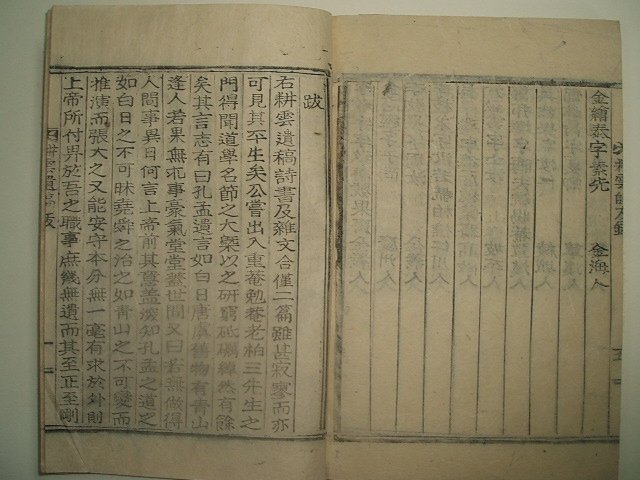 金繪泰字素先 金海人
跋
右耕雲遺稿詩書及雜文合僅二篇雖甚寂寥而亦
可見其平生矣公嘗出入重菴勉菴老柏三先生之
門得聞道學名節之大槩以之研窮砥礪綽然有餘
矣其言志有曰孔孟遺言如白日唐虞舊物有青山
逢人若果無非事豪氣堂堂蓋世間又曰若無做得
人間事異日何言上帝前其意盖深知孔孟之道之
如白日之不可昧堯舜之治之如青山之不可變而
推演而張大之又能安守本分無一毫有求於外則
上帝所付畀於吾之職事庶幾無遺而其至正至剛
耕雲遺稿跋